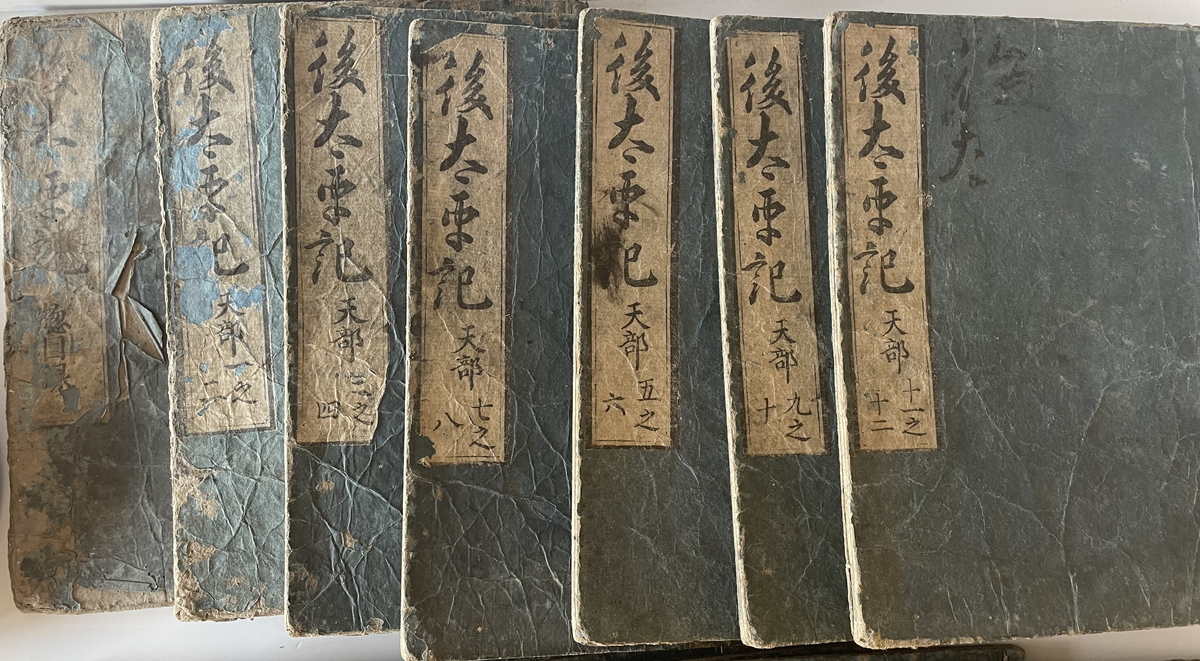 後太平記
惣目録
後太平記
天部
一之
二
後太平記
天部
三之
四
後太平記
天部
七之
八
後太平記
天部
五之
六
後太平記
天部
九之
十
後太平記
天部
十一之
十二